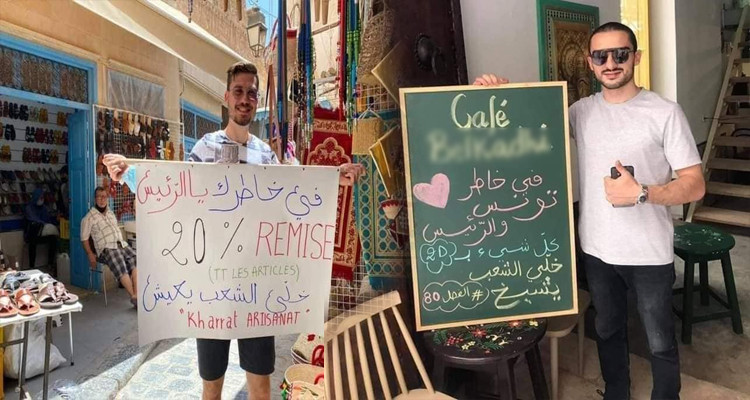 في خاطرك ياالرئيس
20% REMISE
(TT LES ARTICLES)
خلي الشعب يعيش
"Kharrat ARTISANAT"
Café
في خاطر
تونس
والرئيس
كل شيء بـ (2D)
خلي الشعب
يشيخ